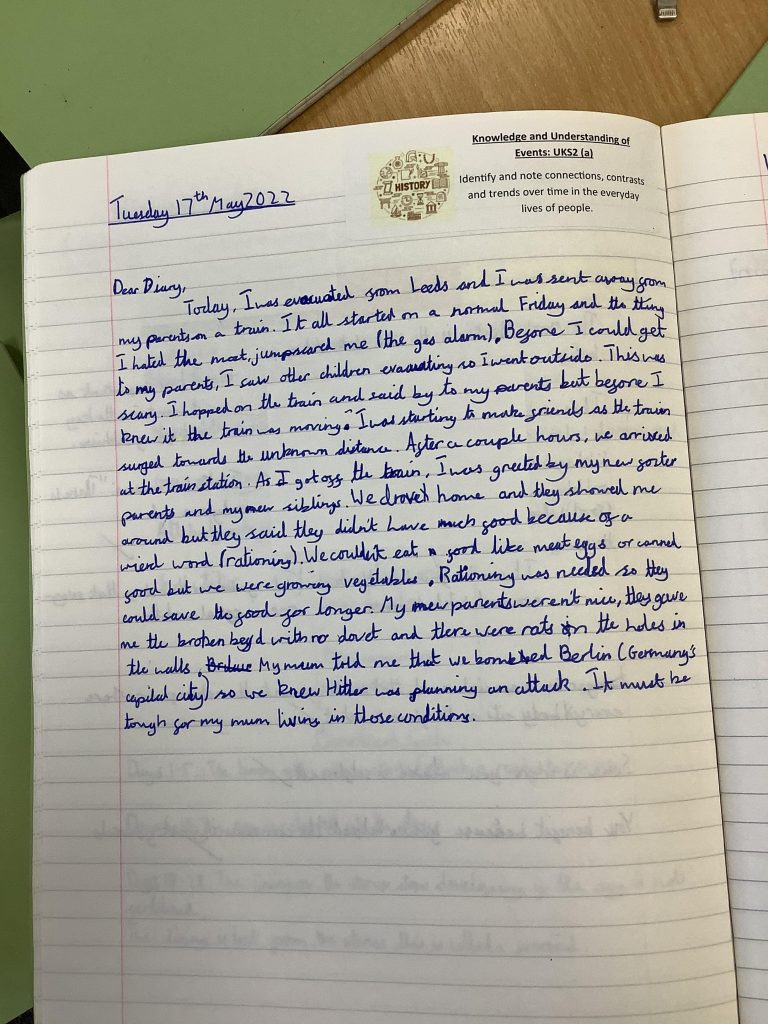 Knowledge and Understanding of
Events: UKS2 (a)
HISTORY
Identify and note connections, contrasts
and trends over time in the everyday
lives of people.
Tuesday 17th May 2022
Dear Diary,
Today, I was evacuated from Leeds and I was sent away from
my parents on a train. It all started on a normal Friday and the thing
I hated the most, jumpscared me (the gas alarm). Before I could get
to my parents, I saw other children evacuating so I went outside. This was
scary. I hopped on the train and said by to my parents but before I
knew it the train was moving. I was starting to make friends as the train
surged towards the unknown distance. After a couple hours, we arrived
at the train station. As I got off the train, I was greeted by my new foster
parents and my new siblings. We drove home and they showed me
around but they said they didn't have much food because of a
wierd word (rationing). We couldn't eat food like meat eggs or canned
food but we were growing vegetables. Rationing was needed so they
could save the food for longer. My new parents weren't nice, they gave
me the broken beyd with no dovet and there were rats in the holes in
the walls. My mum told me that we bombed Berlin (Germany's
capital city) so we knew Hitler was planning an attack. It must be
tough for my mum living in those conditions.